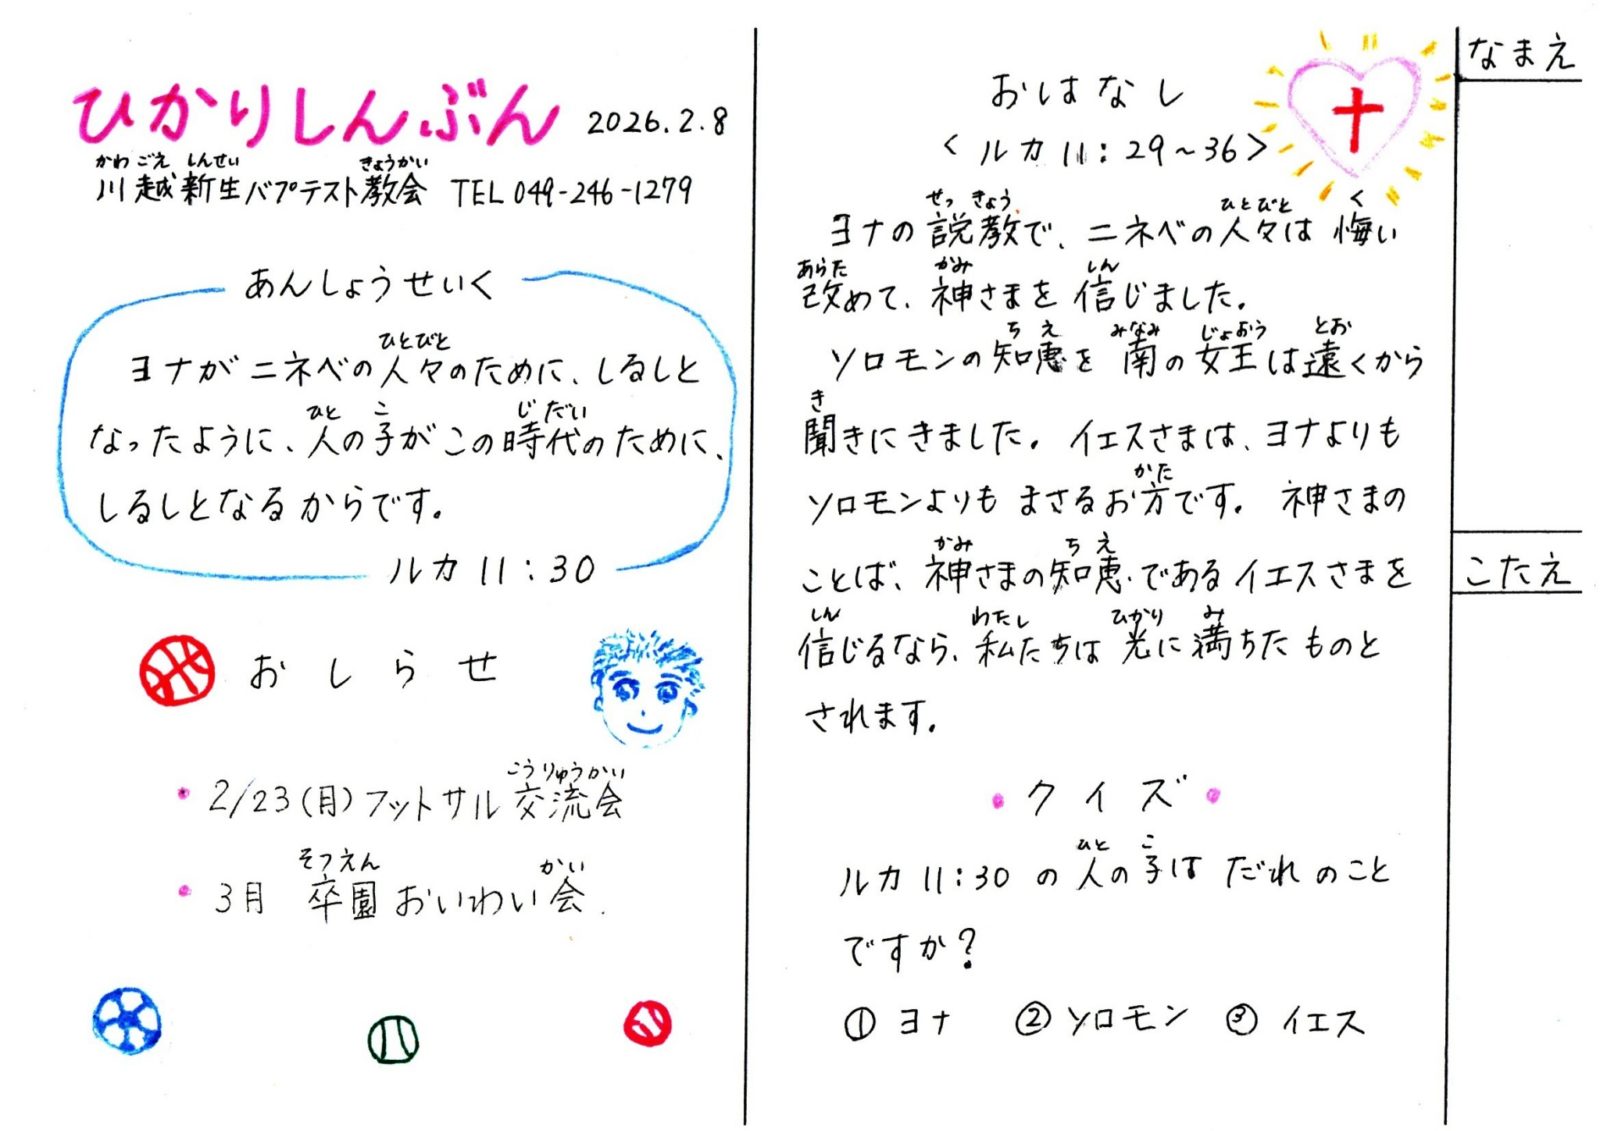 ひかりしんぶん 2026.2.8
かわ ごえ しんせい きょうかい
川越新生バプテスト教会 TEL 049-246-1279
あんしょうせいく
ひとびと
ヨナがニネベの人々のために、しるしと
ひと こ じだい
なったように、人の子がこの時代のために、
しるしとなるからです。
ルカ 11:30
おしらせ
こうりゅうかい
・2/23(月)フットサル交流会
そつえん かい
・3月 卒園おいわい会.
おはなし
<ルカ11:29~36>
せっきょう ひとびと く
ヨナの説教で、ニネベの人々は悔い
あらた かみ しん
改めて、神さまを信じました。
ちえ みなみ じょおう とお
ソロモンの知恵を南の女王は遠くから
き
聞きにきました。イエスさまは、ヨナよりも
かた
ソロモンよりもまさるお方です。神さまの
かみ ちえ
ことば、神さまの知恵であるイエスさまを
しん わたし ひかり み
信じるなら、私たちは光に満ちたものと
されます。
・クイズ・
ひと こ
ルカ11:30の人の子はだれのこと
ですか?
①ヨナ ②ソロモン ③イエス
なまえ
こたえ